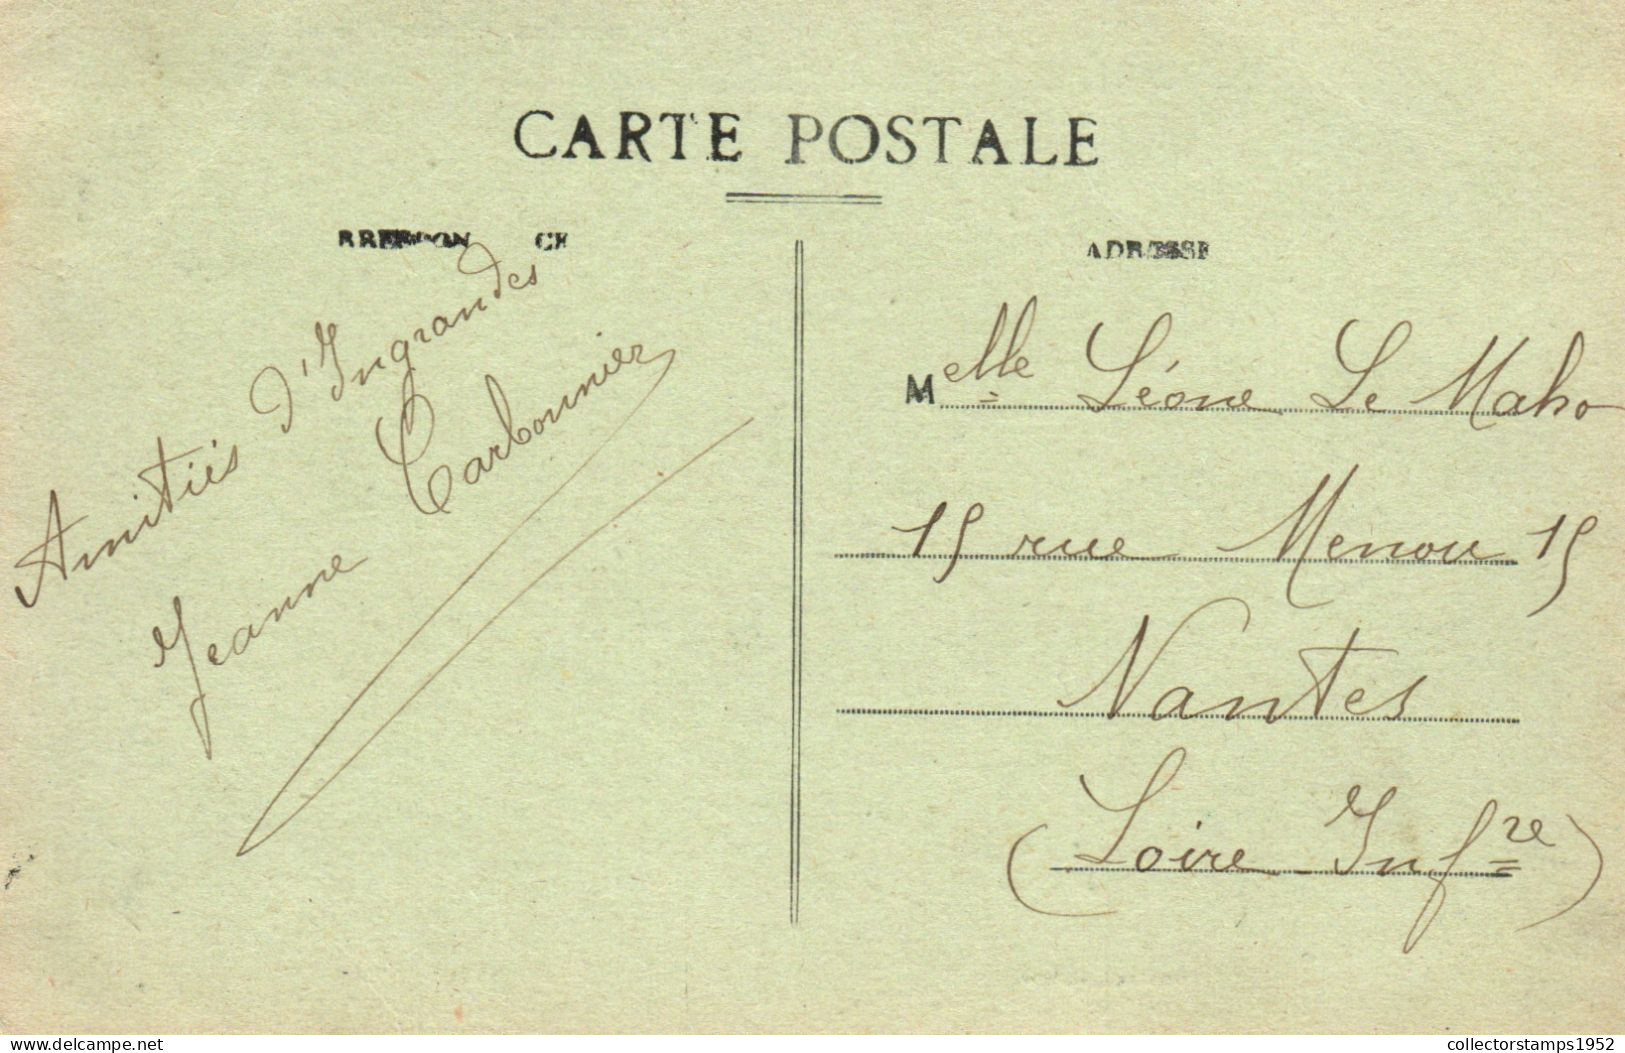 CARTE POSTALE
ADRESSE
Amitiés d'Ingrandes
Jeanne Carbonnier
Melle Léone Le Maho
15 rue Menou 15
Nantes
(Loire Infre)
delcampe.net
collectorstamps1952